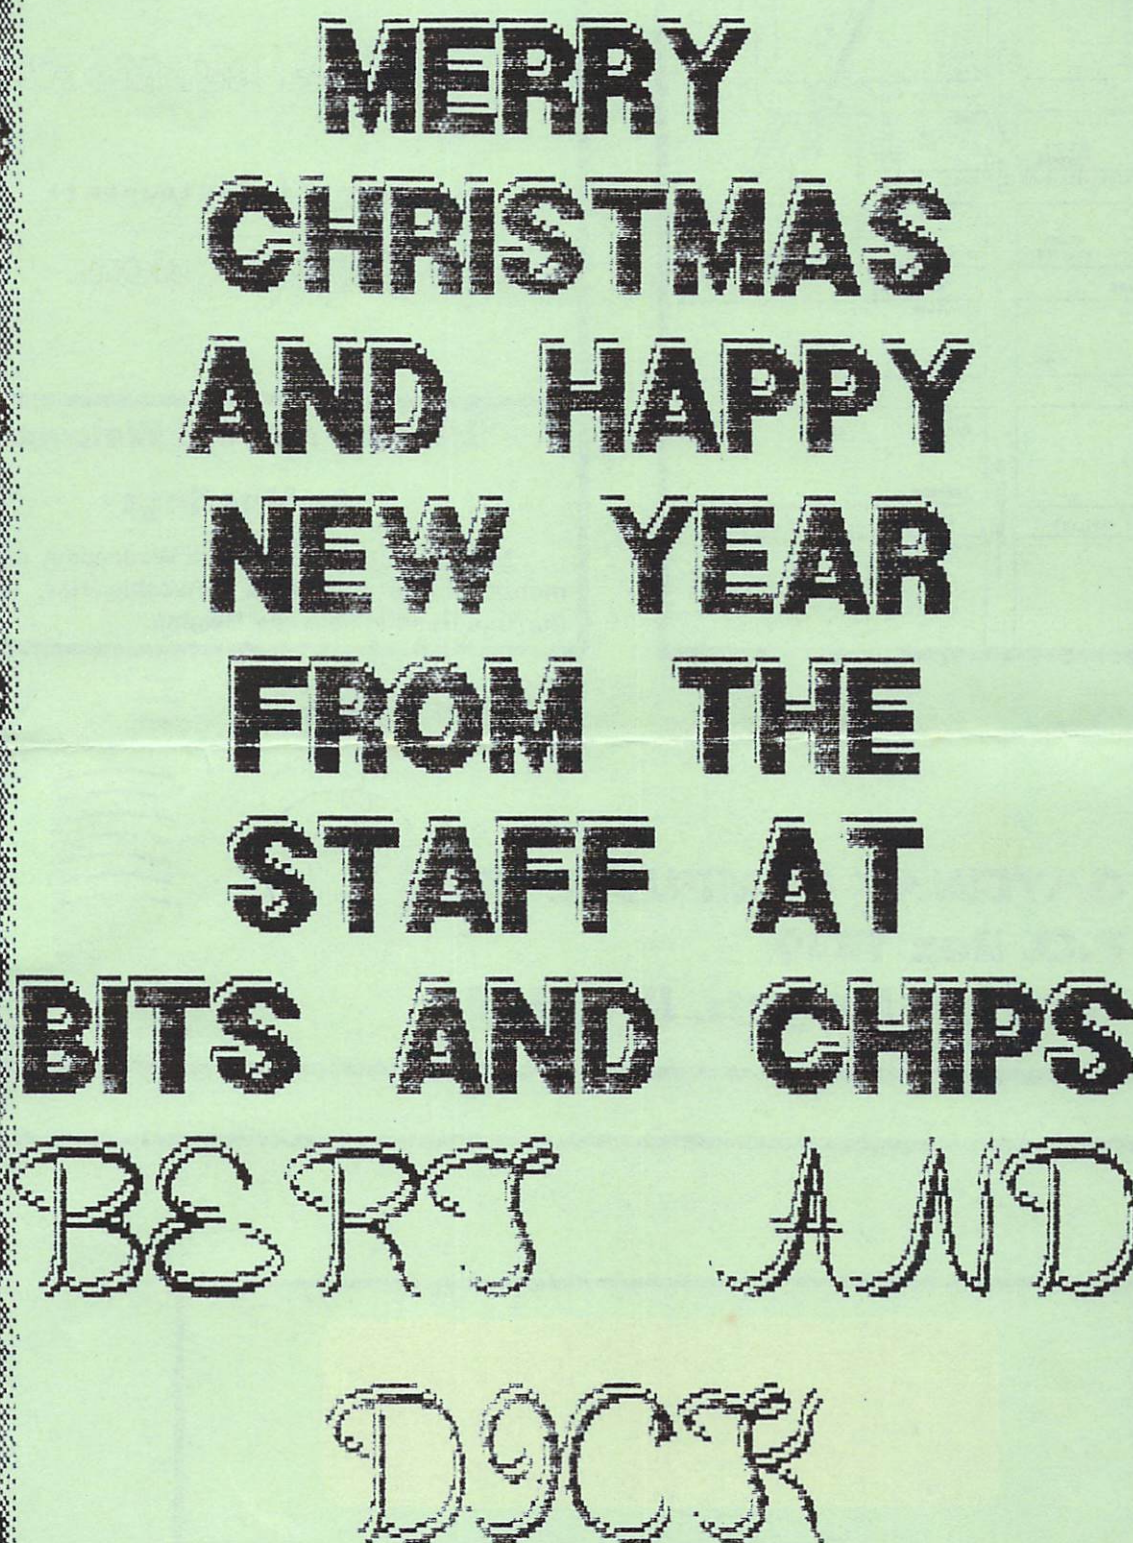 MERRY
CHRISTMAS
AND HAPPY
NEW YEAR
FROM THE
STAFF AT
BITS AND CHIPS
BERT AND
DICK